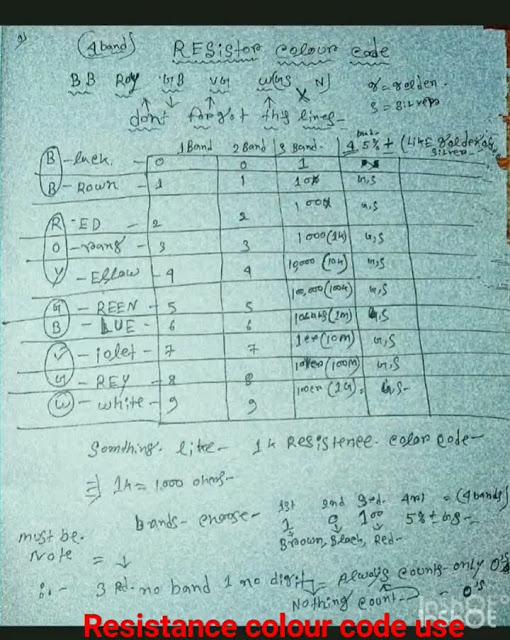 (4 band)
RESistor colour code
BB Roy GB VG W(GS N)
g = golden.
S = Silver
dont forgot this lines-
1 Band 2 Band 3 Band 4 5% ± (Like golden or
silver
B - lack. 0 0 1
B - Rown 1 1 10x G,S
R - ED - 2 2 100x G,S
O - rang - 3 3 1000(1k) G,S
Y - Ellow - 4 4 10,000 (10k) G,S
G - REEN - 5 5 100,000(100k) G,S
B - LUE - 6 6 (1m) G,S
V - iolet - 7 7 1er(10M) G,S
G - REY - 8 8 (100M) G,S
W - white - 9 9 (1G) G,S-
Somthing like- 1k RESistence color code-
⇒ 1k = 1,000 ohms-
1st 2nd 3rd. 4th = (4 bands)
bands - choose - 1 0 100 5% ± GS-
Brown, Black, Red-
must be.
Note = ↓
∴- 3 Rd- no band 1 no digit = Always counts- only 0's
Nothing count - 0's
Resistance colour code use